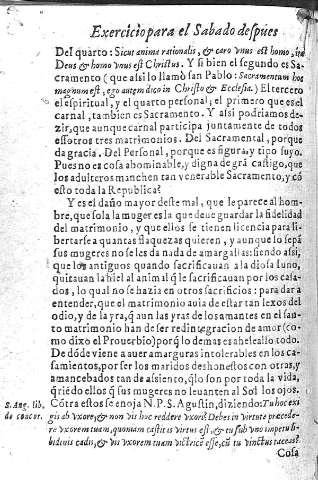 Exercicio para el Sabado despues
Del quarto: Sicut anima rationalis, & caro vnus est homo, ita
Deus & homo vnus est Christus. Y si bien el segundo es Sa-
cramento (que assi lo llamò san Pablo: Sacramentum hoc
magnum est, ego autem dico in Christo & Ecclesia.) El tercero
el espiritual, y el quarto personal; el primero que es el
carnal, tambien es Sacramento. Y assi podriamos de-
zir, que aunque carnal participa juntamente de todos
essotros tres matrimonios. Del Sacramental, porque
da gracia. Del Personal, porque es figura, y tipo suyo.
Pues no es cosa abominable, y digna de grã castigo, que
los adulteros manchen tan venerable Sacramento, y cõ
esto toda la Republica?
Y es el daño mayor deste mal, que le parece al hom-
bre, que sola la muger es la que deue guardar la fidelidad
del matrimonio, y que ellos se tienen licencia para li-
bertarse a quantas flaquezas quieren, y aunque lo sepã
sus mugeres no se les da nada de amargallas: siendo assi,
que los antiguos quando sacrificauan a la diosa Iuno,
quitauan la hiel al animal q̃ le sacrificauan por los casa-
dos, lo qual no se hazia en otros sacrificios: para dar a
entender, que el matrimonio auia de estar tan lexos del
odio, y de la yra, q̃ aun las yras de los amantes en el san-
to matrimonio han de ser redintegracion de amor (co-
mo dixo el Prouerbio) porq̃ lo demas es aheleallo todo.
De dõde viene a auer amarguras intolerables en los ca-
samientos, por ser los maridos deshonestos con otras, y
amancebados tan de asiento, q̃ lo son por toda la vida,
q̃riẽdo ellos q̃ sus mugeres no leuanten al Sol los ojos.
S. Aug. lib. Cõtra estos se enoja N. P. S. Agustin, diziendo: Tu hoc exi
de concor. gis ab vxore, & non vis hoc reddere vxori? Debes in virtute præcede-
re vxorem tuam, quoniam castitas virtus est, & tu sub vno impetu li-
bidinis cadis, & vis vxorem tuam victricẽ esse, cũ tu vinctus iaceas?
Cosa